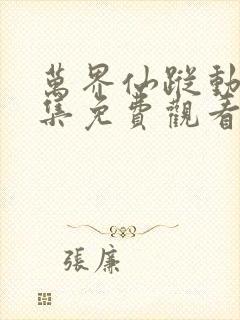 萬界仙蹤動
集免費觀看
張廉